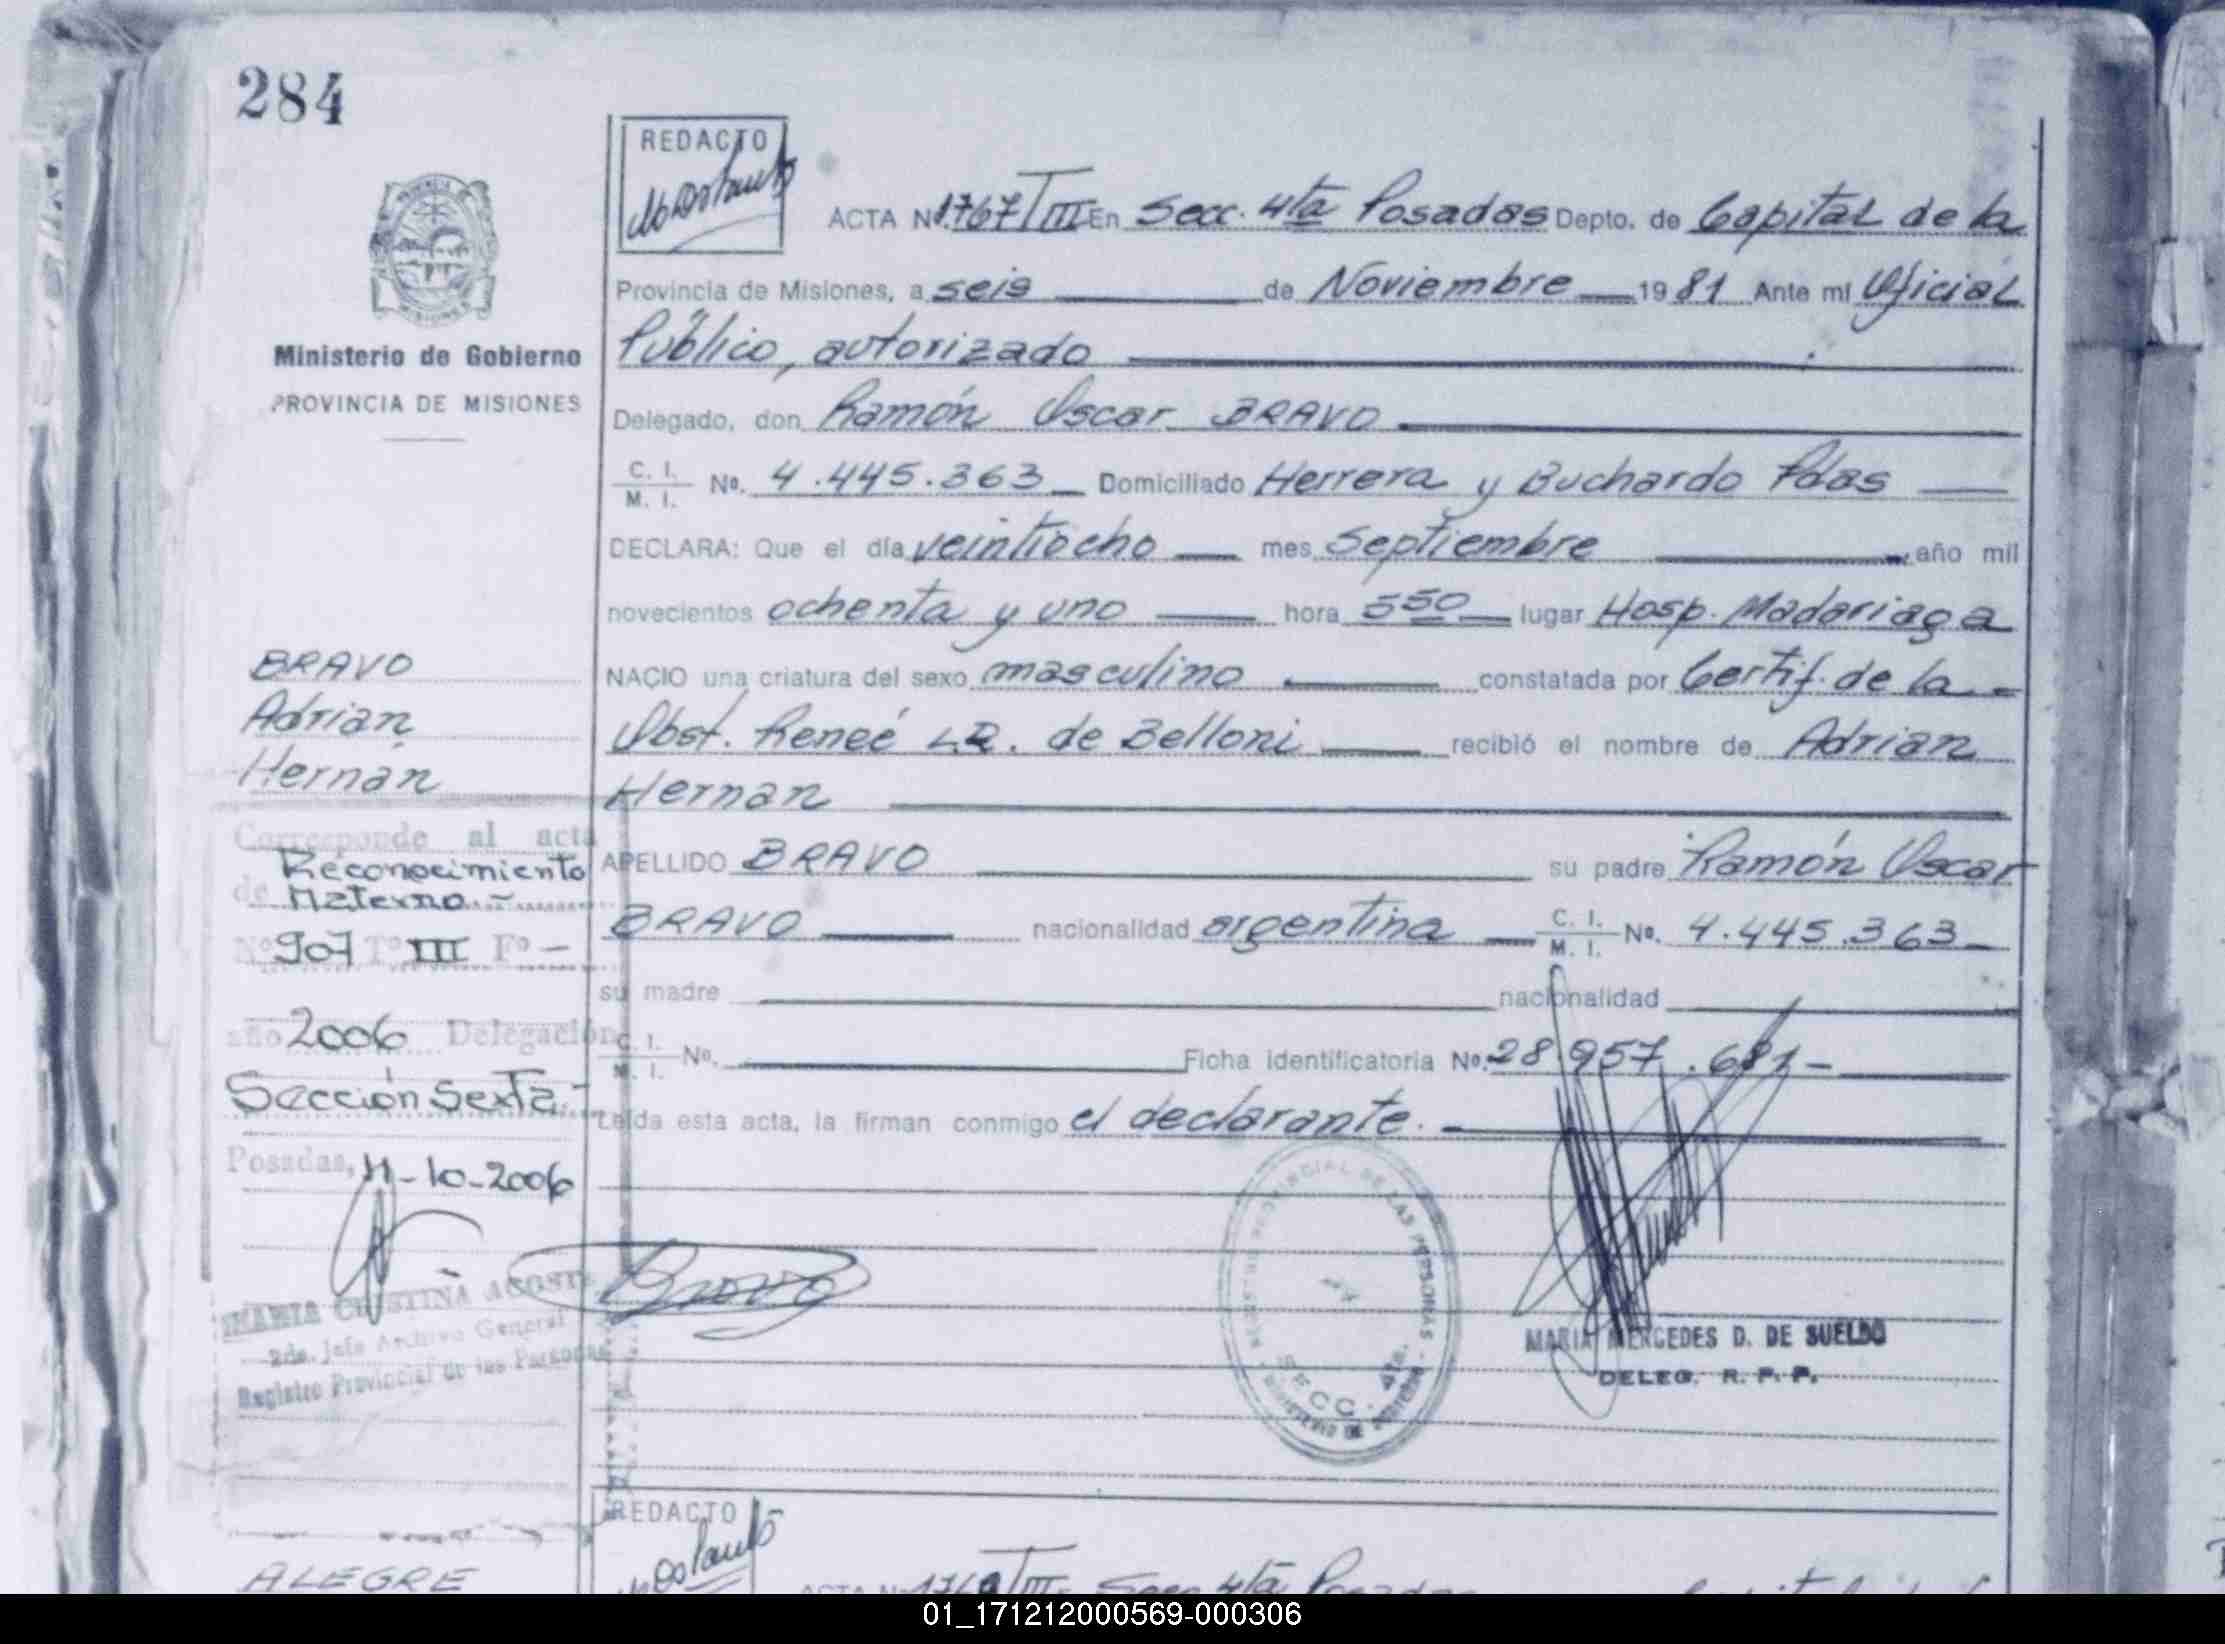 284
REDACTO
ACTA Nº 1767 T III En Secc. 4ta Posadas Depto. de Capital de la
Provincia de Misiones, a seis de Noviembre 1981 Ante mi Oficial
Público, autorizado
Delegado, don Ramón Oscar BRAVO
C. I. / M. I. No. 4.445.363 Domiciliado Herrera y Buchardo Pdas
DECLARA: Que el día veintiocho mes Septiembre año mil
novecientos ochenta y uno hora 5 50 lugar Hosp. Madariaga
NACIO una criatura del sexo masculino constatada por Certif. de la
Obst. Reneé L.R. de Belloni recibió el nombre de Adrian
Hernan
APELLIDO BRAVO su padre Ramón Oscar
BRAVO nacionalidad argentina C. I. / M. I. No. 4.445.363
su madre nacionalidad
C. I. / M. I. No. Ficha identificatoria No. 28.957.681
Leída esta acta, la firman conmigo el declarante.
PROVINCIA DE MISIONES
Ministerio de Gobierno
PROVINCIA DE MISIONES
BRAVO
Adrian
Hernan
Corresponde al acta
de Reconocimiento
Materno.-
Nº 907 Tº III Fº -
año 2006 Delegación
Sección Sexta.-
Posadas, 11-10-2006
MARIA CRISTINA ACOSTA
2da. Jefa Archivo General
Registro Provincial de las Personas
Bravo
REGISTRO PROVINCIAL DE LAS PERSONAS
SECC. 4ta.
MINISTERIO DE GOBIERNO
MARIA MERCEDES D. DE SUELDO
DELEG. R. P. P.
REDACTO
ALEGRE
ACTA Nº 1768 T III Secc 4ta Posadas
01_171212000569-000306